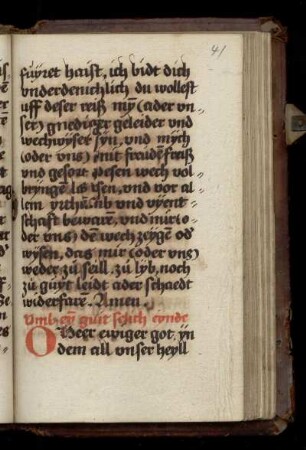 41
fuyret haist, ich bidt dich
vnderdenichlich du wollest
vff deser reiß my (ader vn-
ser) gnediger geleider vnd
wechwyser syn, vnd mych
(oder vns) mit freuden
vnd gesont desen wech vol-
bryngen vnd vor al-
lem vnd vyent-
schaft bewaren, vnd mir (o-
der vns) den wech zeygen od
wysen, das mir (oder vns)
weder zů seill, zů lyb, noch
zů gůyt leidt ader schaedt
widerfare. Amen
Vmb eyn guit selich eynde
O Heer ewiger got, yn
dem all vnser heyll